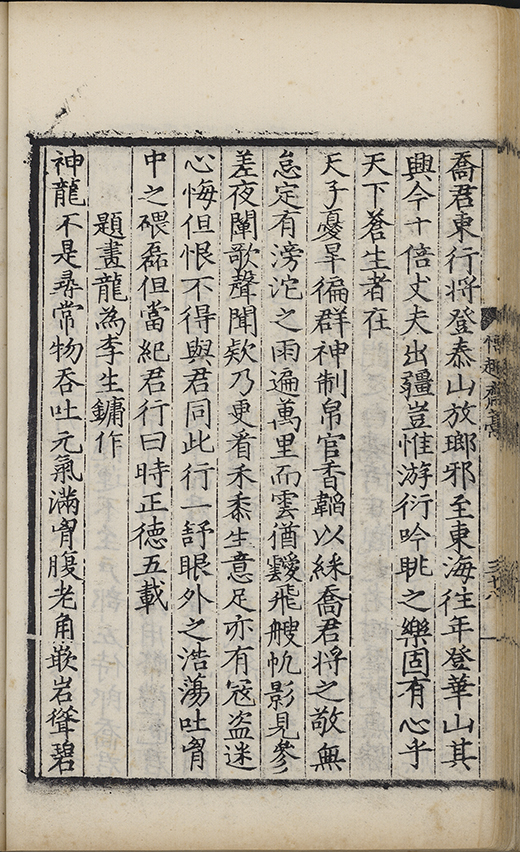 喬君東行將登泰山放瑯邪至東海往年登華山其
興今十倍丈夫出疆豈惟游衍吟眺之樂固有心乎
天下蒼生者在
天子憂旱徧群神制帛官香韜以綵喬君將之敬無
怠定有滂沱之雨遍萬里而雲猶靉飛艘帆影見參
差夜闡歌聲聞欵乃更看禾黍生意足亦有寇盜迷
心悔但恨不得與君同此行一舒眼外之浩蕩吐胷
中之磈磊但當紀君行曰時正德五載
題畫龍為李生鏞作
神龍不是尋常物吞吐元氣滿胷腹老角嶔岩聳碧
博趣齋藁